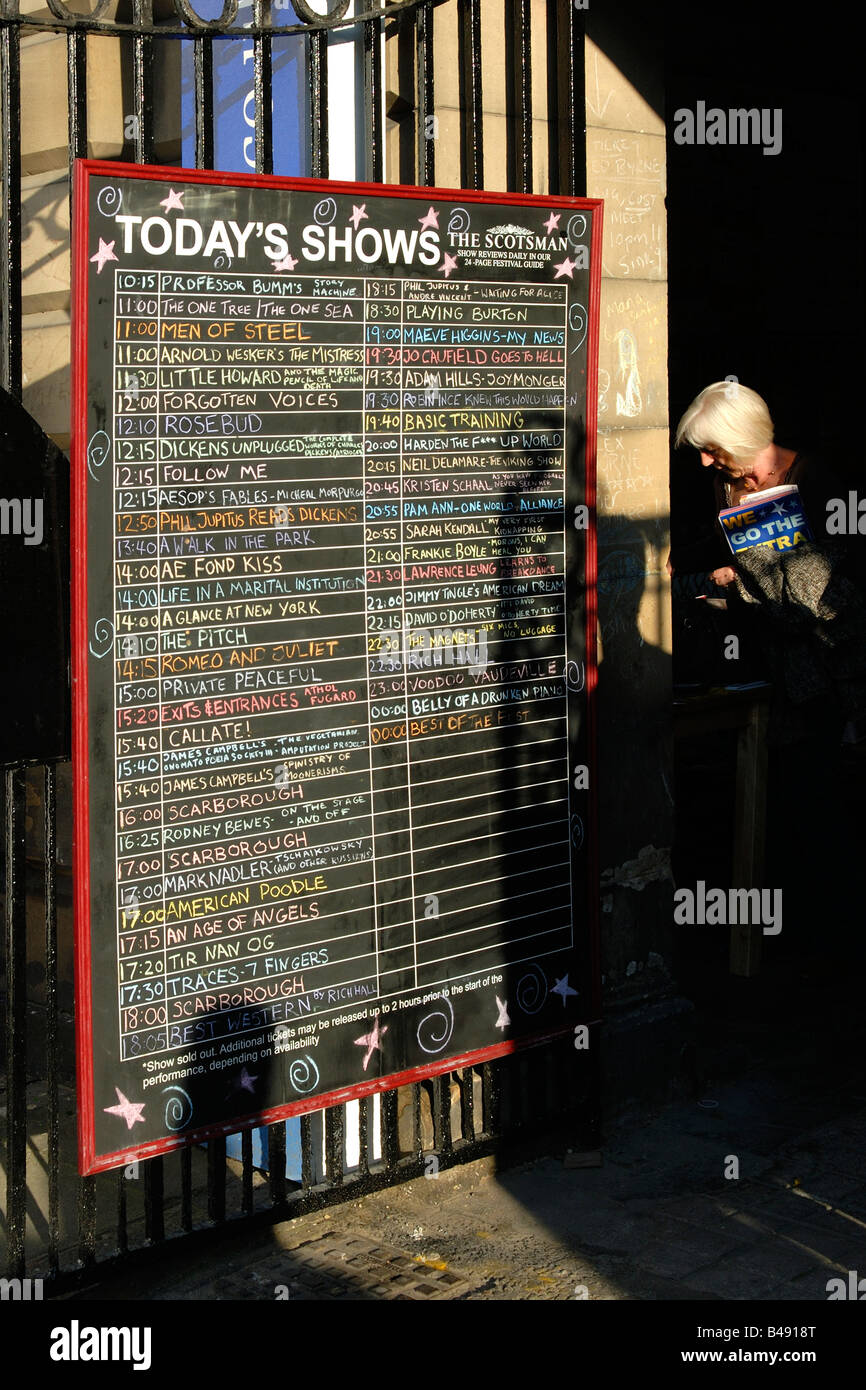 TODAY'S SHOWS
THE SCOTSMAN
SHOW REVIEWS DAILY IN OUR
24-PAGE FESTIVAL GUIDE
10:15 PROFESSOR BUMM'S STORY MACHINE
11:00 THE ONE TREE/THE ONE SEA
11:00 MEN OF STEEL
11:00 ARNOLD WESKER'S THE MISTRESS
11:30 LITTLE HOWARD AND THE MAGIC PENCIL OF LIFE AND DEATH
12:00 FORGOTTEN VOICES
12:10 ROSEBUD
12:15 DICKENS UNPLUGGED THE COMPLETE WORKS OF CHARLES DICKENS/ABRIDGED
12:15 FOLLOW ME
12:15 AESOP'S FABLES - MICHEAL MORPURGO
12:50 PHIL JUPITUS READS DICKENS
13:40 A WALK IN THE PARK
14:00 AE FOND KISS
14:00 LIFE IN A MARITAL INSTITUTION
14:00 A GLANCE AT NEW YORK
14:10 THE PITCH
14:15 ROMEO AND JULIET
15:00 PRIVATE PEACEFUL
15:20 EXITS & ENTRANCES ATHOL FUGARD
15:40 CALLATE!
15:40 JAMES CAMPBELL'S - THE VEGETARIAN ONOMATOPOEIA SOCIETY III - AMPUTATION PROJECT
15:40 JAMES CAMPBELL'S SPINISTRY OF MOONERISMS
16:00 SCARBOROUGH
16:25 RODNEY BEWES - ON THE STAGE - AND OFF
17:00 SCARBOROUGH
17:00 MARK NADLER - TSCHAIKOWSKY (AND OTHER RUSSIANS)
17:00 AMERICAN POODLE
17:15 AN AGE OF ANGELS
17:20 TIR NAN OG
17:30 TRACES - 7 FINGERS
18:00 SCARBOROUGH
18:05 BEST WESTERN BY RICH HALL
18:15 PHIL JUPITUS & ANDRE VINCENT - WAITING FOR ALICE
18:30 PLAYING BURTON
19:00 MAEVE HIGGINS - MY NEWS
19:30 JO CAUFIELD GOES TO HELL
19:30 ADAM HILLS - JOYMONGER
19:30 ROBIN INCE KNEW THIS WOULD HAPPEN
19:40 BASIC TRAINING
20:00 HARDEN THE F*** UP WORLD
20:15 NEIL DELAMARE - THE VIKING SHOW
20:45 KRISTEN SCHAAL AS YOU HAVE NEVER SEEN HER
20:55 PAM ANN - ONE WORLD, ALLIANCE
20:55 SARAH KENDALL 'MY VERY FIRST KIDNAPPING
21:00 FRANKIE BOYLE - MORONS, I CAN HEAL YOU
21:30 LAWRENCE LEUNG LEARNS TO BREAKDANCE
22:00 JIMMY TINGLE'S AMERICAN DREAM
22:15 DAVID O'DOHERTY - IT'S DAVID O'DOHERTY TIME
22:30 THE MAGNETS - SIX MICS, NO LUGGAGE
22:30 RICH HALL
23:00 VOODOO VAUDEVILLE
00:00 BELLY OF A DRUNKEN PIANO
00:00 BEST OF THE FEST
*Show sold out. Additional tickets may be released up to 2 hours prior to the start of the
performance, depending on availability
TICKET
MEET
10pm!!
WE
GO THE
XTRA
alamy
Image ID: B4918T
www.alamy.com